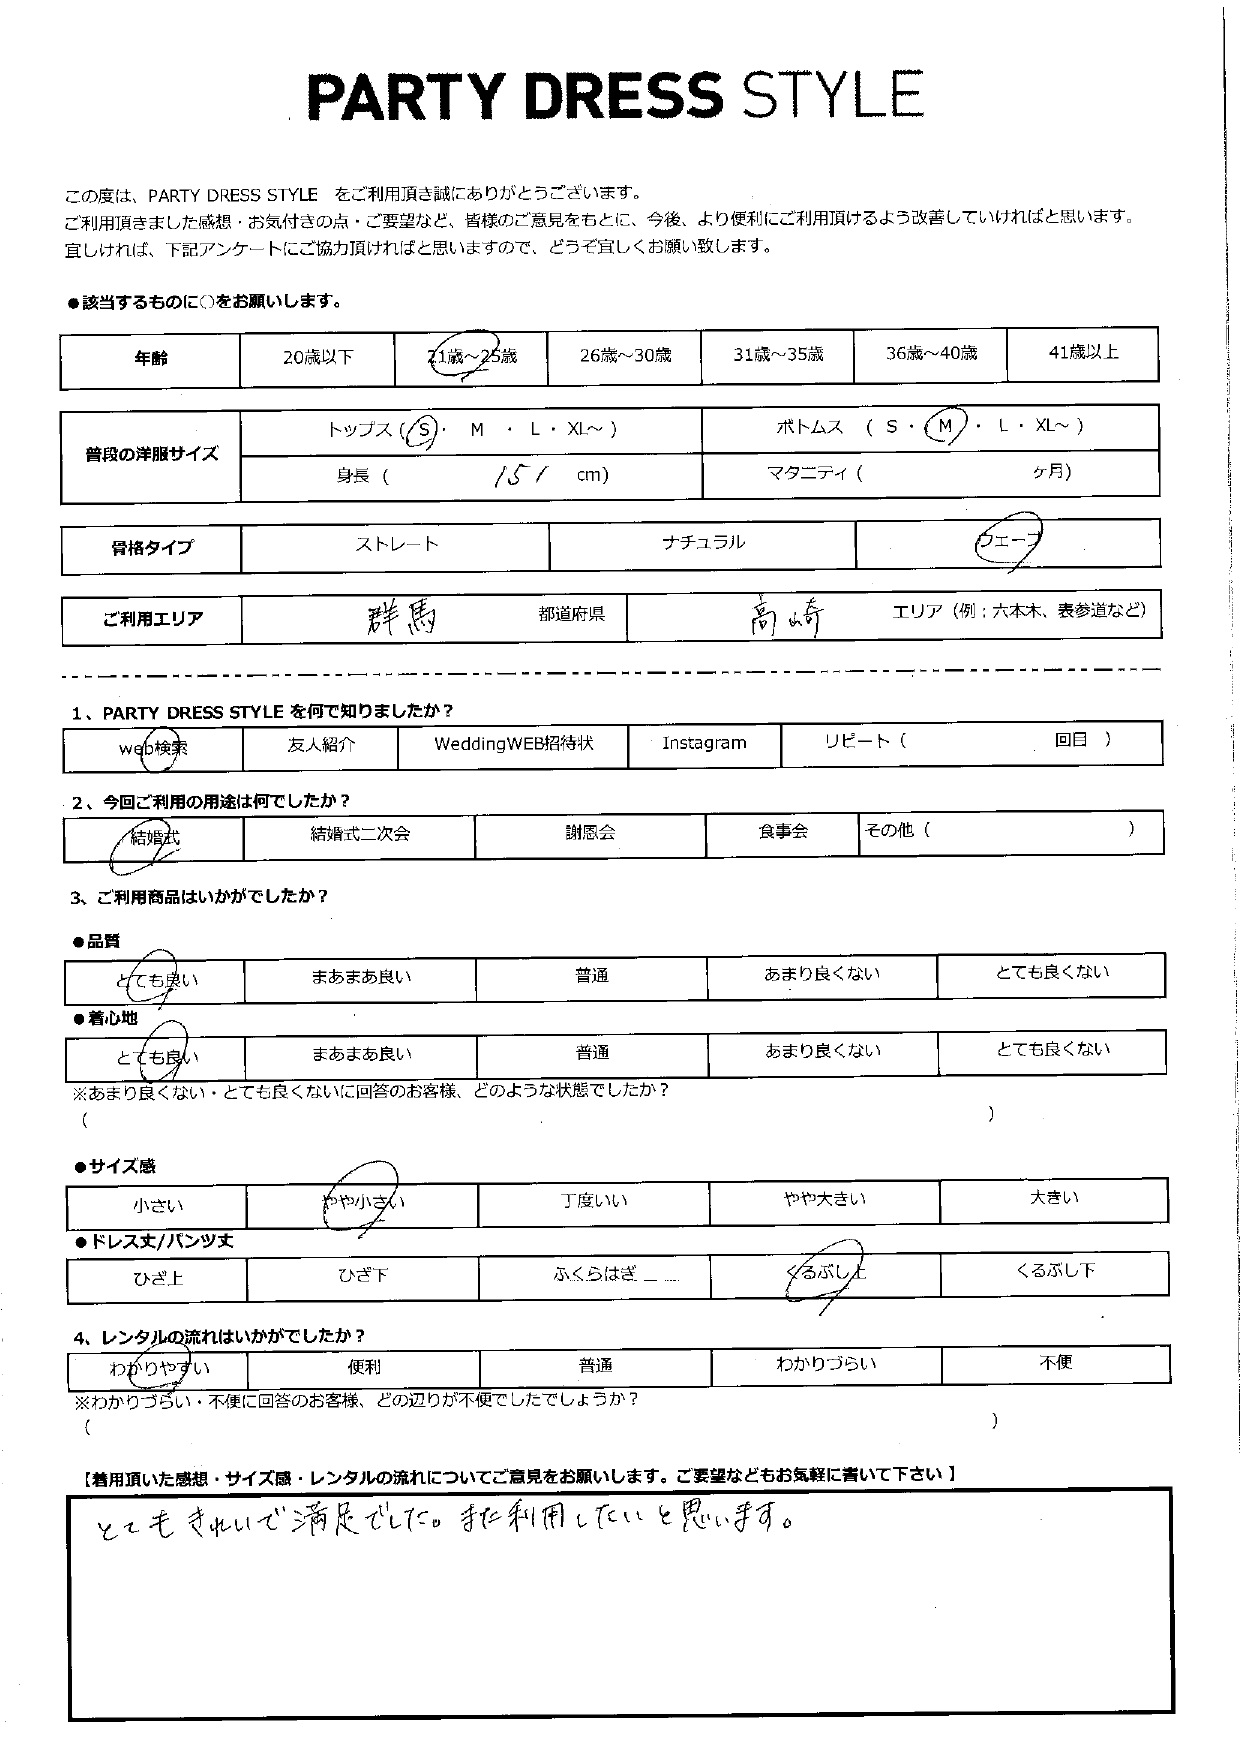 PARTY DRESS STYLE
この度は、PARTY DRESS STYLE をご利用頂き誠にありがとうございます。
ご利用頂きました感想・お気付きの点・ご要望など、皆様のご意見をもとに、今後、より便利にご利用頂けるよう改善していければと思います。
宜しければ、下記アンケートにご協力頂ければと思いますので、どうぞ宜しくお願い致します。
●該当するものに○をお願いします。
年齢 20歳以下 21歳～25歳 26歳～30歳 31歳～35歳 36歳～40歳 41歳以上
普段の洋服サイズ
トップス ( S ・ M ・ L ・ XL～ ) ボトムス ( S ・ M ・ L ・ XL～ )
身長 ( 151 cm) マタニティ ( ヶ月)
骨格タイプ ストレート ナチュラル ウェーブ
ご利用エリア 群馬 都道府県 高崎 エリア（例；六本木、表参道など）
1、PARTY DRESS STYLE を何で知りましたか？
web検索 友人紹介 WeddingWEB招待状 Instagram リピート ( 回目 )
2、今回ご利用の用途は何でしたか？
結婚式 結婚式二次会 謝恩会 食事会 その他 ( )
3、ご利用商品はいかがでしたか？
●品質
とても良い まあまあ良い 普通 あまり良くない とても良くない
●着心地
とても良い まあまあ良い 普通 あまり良くない とても良くない
※あまり良くない・とても良くないに回答のお客様、どのような状態でしたか？
( )
●サイズ感
小さい やや小さい 丁度いい やや大きい 大きい
●ドレス丈/パンツ丈
ひざ上 ひざ下 ふくらはぎ くるぶし上 くるぶし下
4、レンタルの流れはいかがでしたか？
わかりやすい 便利 普通 わかりづらい 不便
※わかりづらい・不便に回答のお客様、どの辺りが不便でしたでしょうか？
( )
【着用頂いた感想・サイズ感・レンタルの流れについてご意見をお願いします。ご要望などもお気軽に書いて下さい 】
とてもきれいで満足でした。また利用したいと思います。